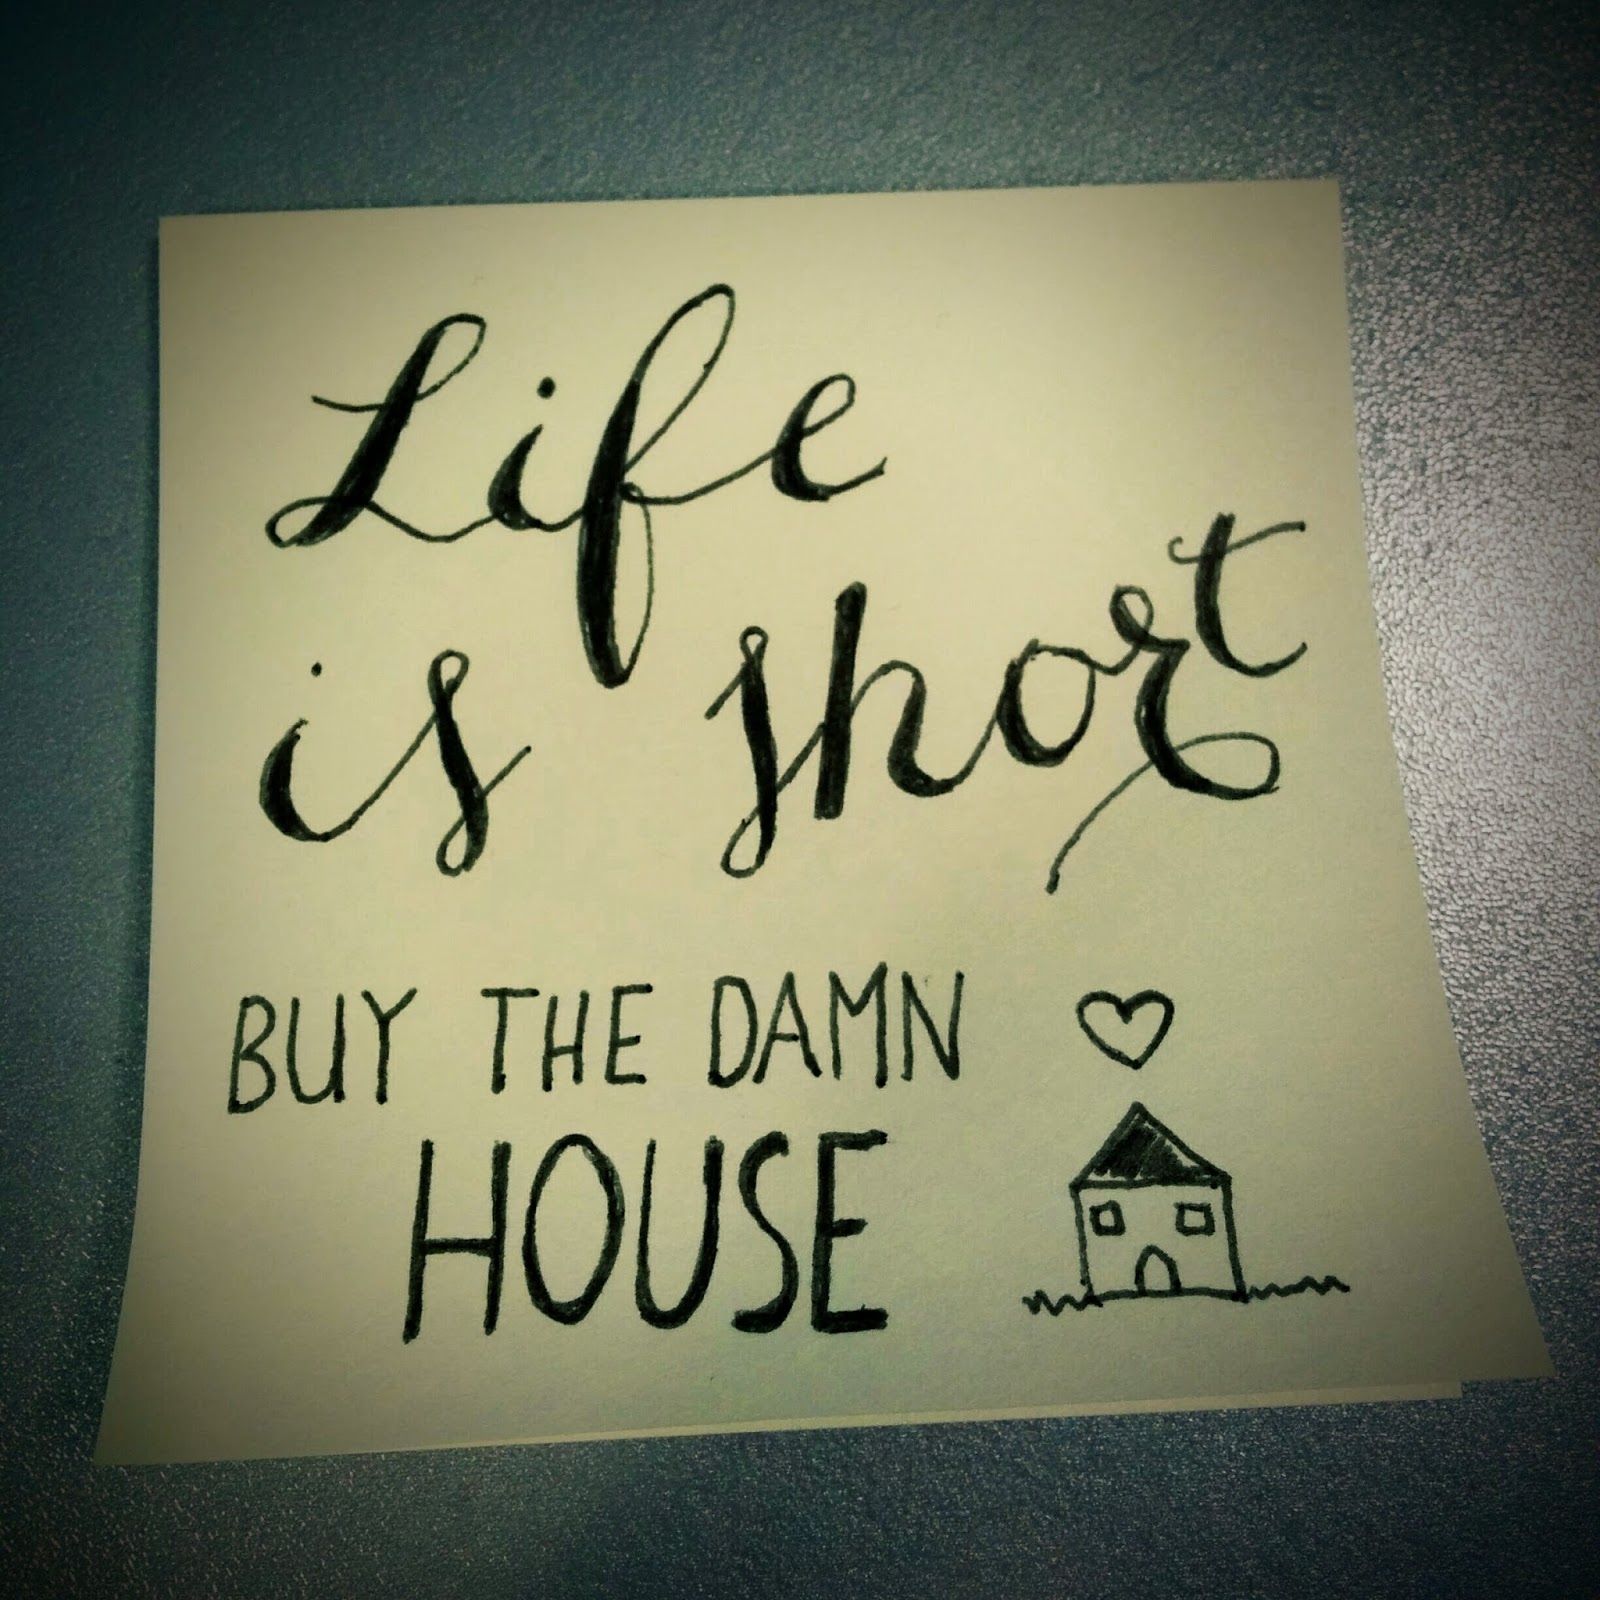 Life
is short
BUY THE DAMN
HOUSE